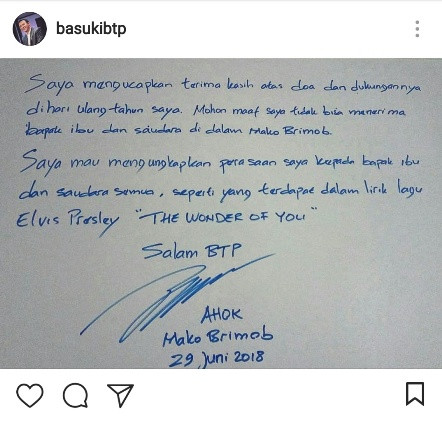 basukibtp
Saya mengucapkan terima kasih atas doa dan dukungannya
dihari ulang tahun saya. Mohon maaf saya tidak bisa menerima
bapak ibu dan saudara di dalam Mako Brimob.
Saya mau mengungkapkan perasaan saya kepada bapak ibu
dan saudara semua, seperti yang terdapat dalam lirik lagu
Elvis Presley "THE WONDER OF YOU"
Salam BTP
AHOK
Mako Brimob
29 Juni 2018